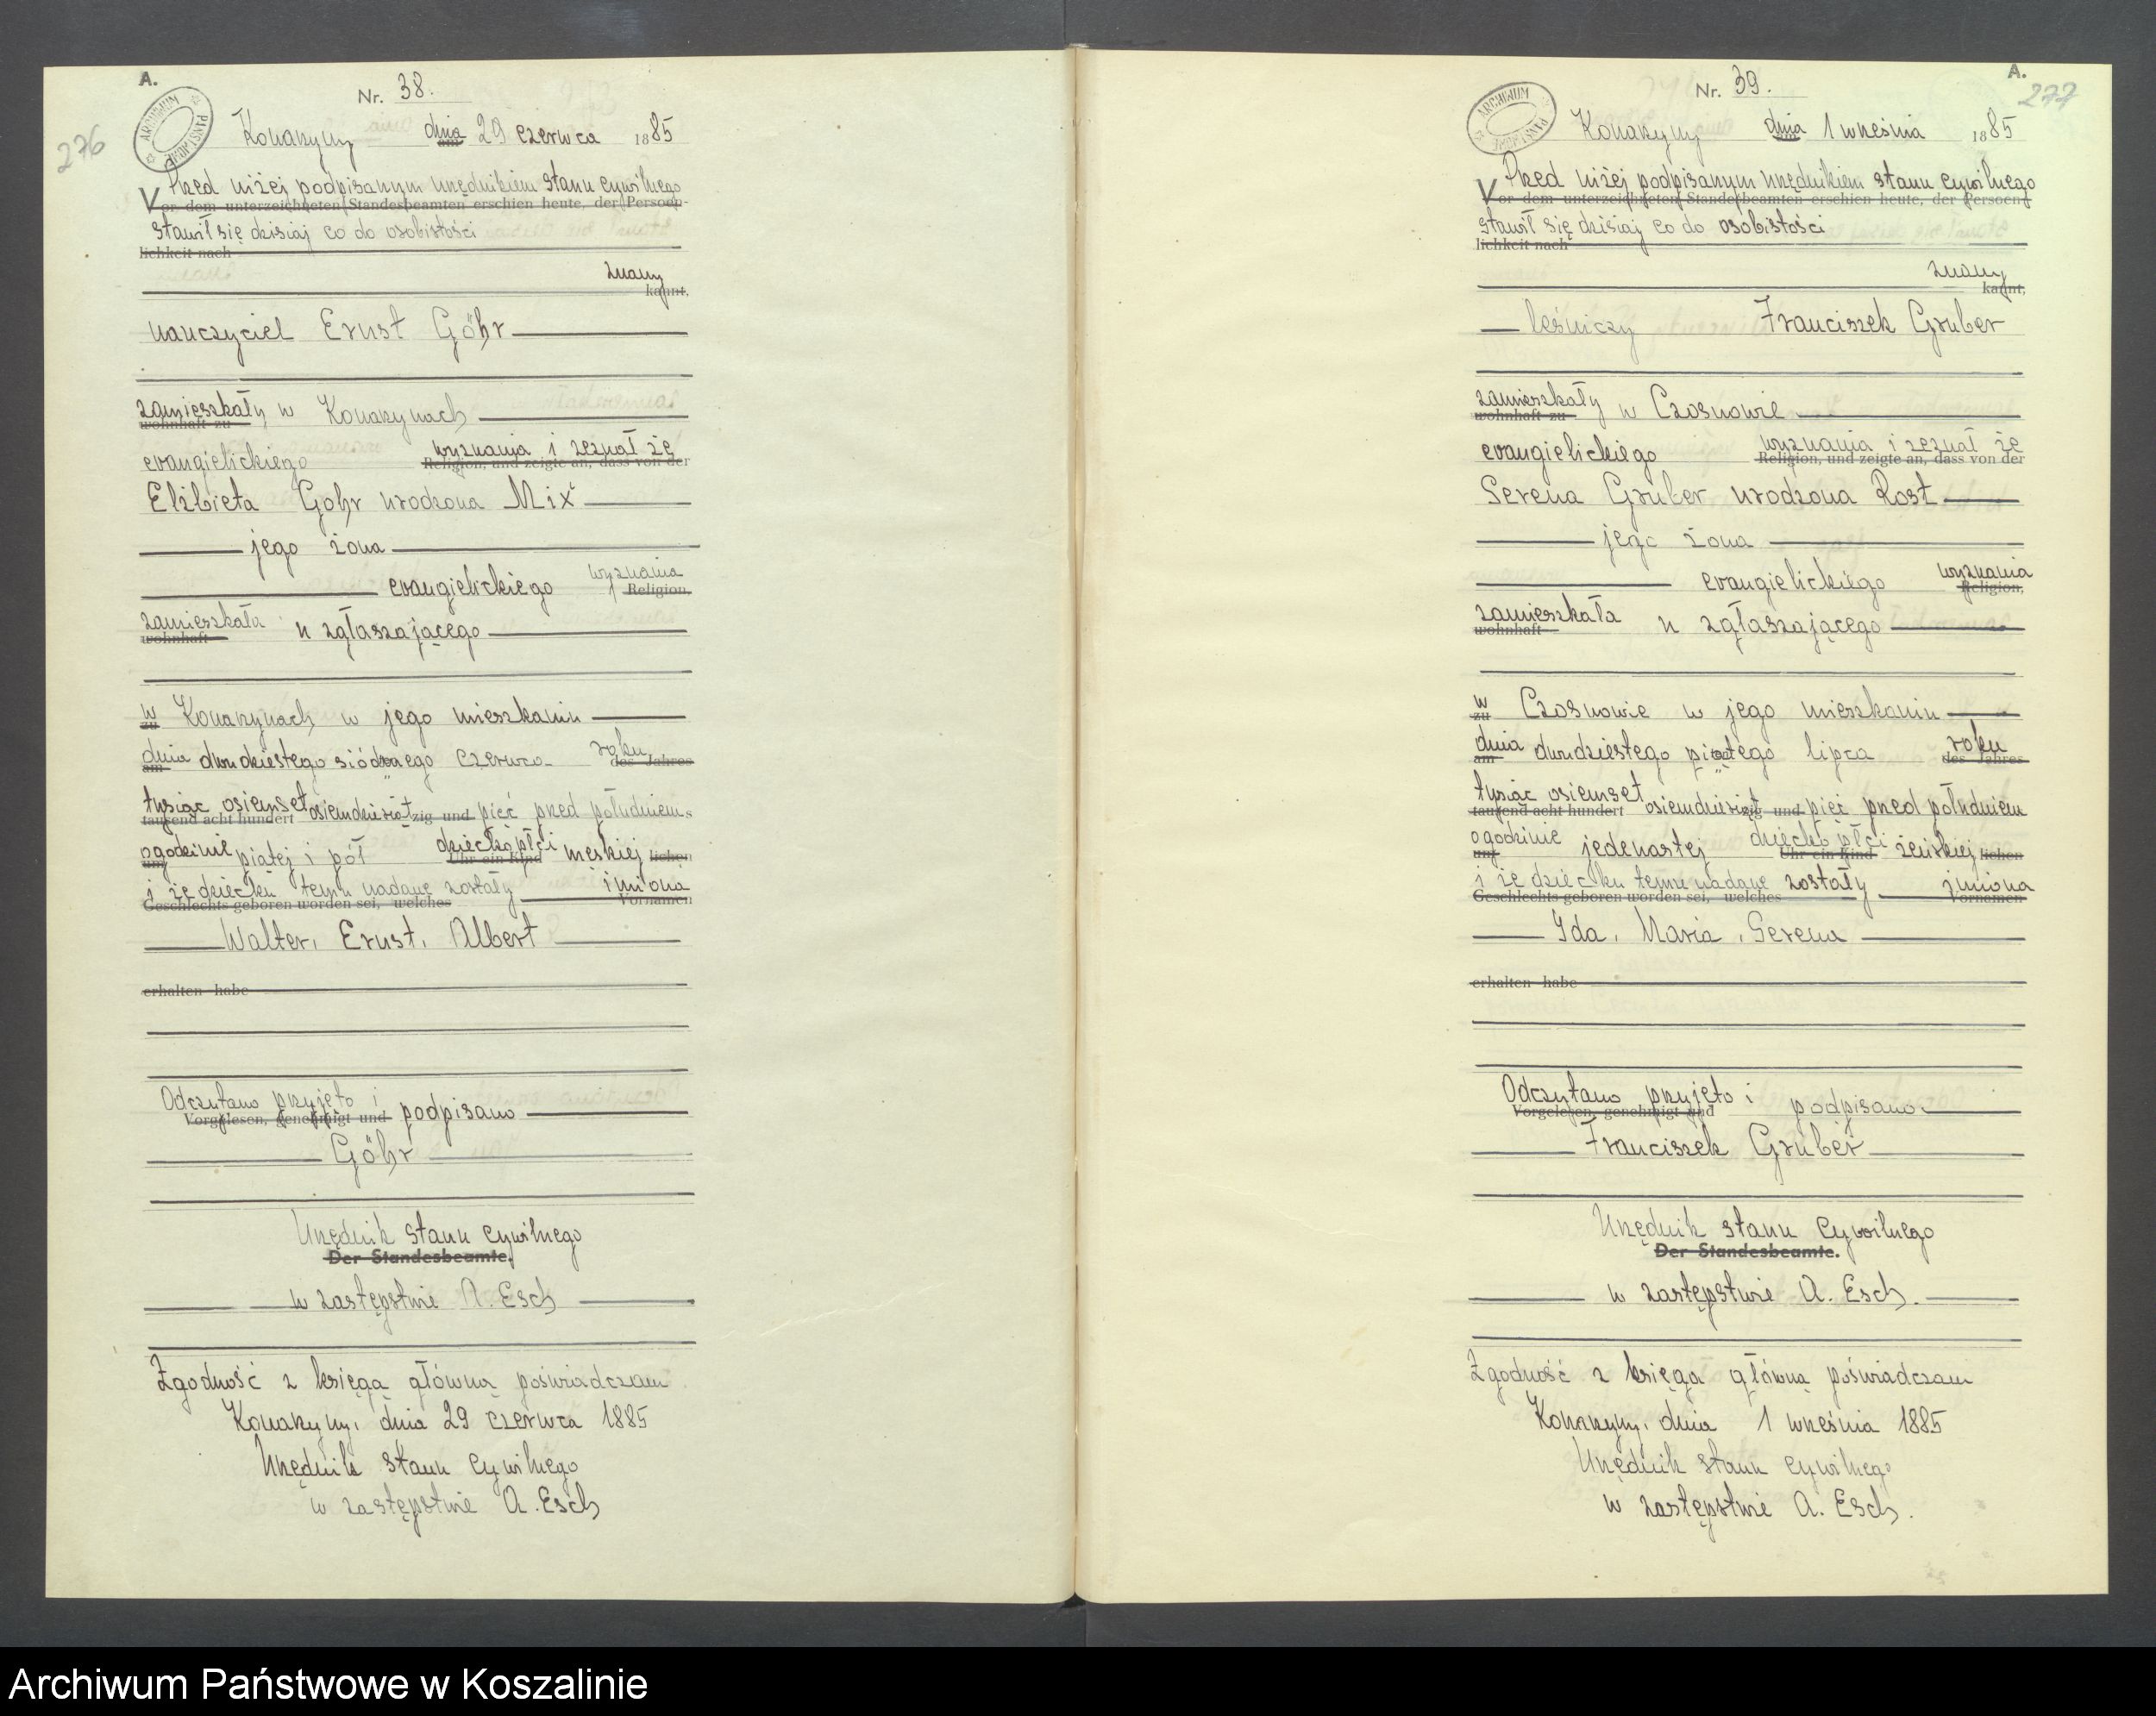 A.
Nr. 38.
276
ARCHIWUM PAŃSTWOWE
Konarzyny dnia 29 czerwca 1885
Przed niżej podpisanym urzędnikiem stanu cywilnego
Vor dem unterzeichneten Standesbeamten erschien heute, der Persoen-
stawił się dzisiaj co do osobistości
lichkeit nach
znany
kannt,
nauczyciel Ernst Göhr
zamieszkały w Konarzynach
wohnhaft zu
evangielickiego wyznania i zeznał że
Religion, und zeigte an, dass von der
Elżbieta Göhr urodzona Mix
jego żona
evangielickiego wyznania
Religion,
zamieszkała u zgłaszającego
wohnhaft
w Konarzynach w jego mieszkaniu
zu
dnia dwudziestego siódmego czerwca roku
am des Jahres
tysiąc osiemset osiemdziesiąt pięć przed południem
tausend acht hundert zig und
o godzinie piątej i pół dziecko płci męskiej
um Uhr ein Kind lichen
i że dziecku temu nadane zostały imiona
Geschlechts geboren worden sei, welches Vornamen
Walter, Ernst, Albert
erhalten habe
Odczytano przyjęto i podpisano
Vorgelesen, genehmigt und
Göhr
Urzędnik stanu cywilnego
Der Standesbeamte.
w zastępstwie A. Esch
Zgodność z księgą główną poświadczam
Konarzyny, dnia 29 czerwca 1885
Urzędnik stanu cywilnego
w zastępstwie A. Esch
A.
Nr. 39.
277
ARCHIWUM PAŃSTWOWE
Konarzyny dnia 1 września 1885
Przed niżej podpisanym urzędnikiem stanu cywilnego
Vor dem unterzeichneten Standesbeamten erschien heute, der Persoen-
stawił się dzisiaj co do osobistości
lichkeit nach
znany
kannt,
leśniczy Franciszek Gruber
zamieszkały w Czosnowie
wohnhaft zu
evangielickiego wyznania i zeznał że
Religion, und zeigte an, dass von der
Serena Gruber urodzona Rost
jego żona
evangielickiego wyznania
Religion,
zamieszkała u zgłaszającego
wohnhaft
w Czosnowie w jego mieszkaniu
zu
dnia dwudziestego piątego lipca roku
am des Jahres
tysiąc osiemset osiemdziesiąt pięć przed południem
tausend acht hundert zig und
o godzinie jedenastej dziecko płci żeńskiej
um Uhr ein Kind lichen
i że dziecku temu nadane zostały imiona
Geschlechts geboren worden sei, welches Vornamen
Ida, Maria, Serena
erhalten habe
Odczytano przyjęto i podpisano
Vorgelesen, genehmigt und
Franciszek Gruber
Urzędnik stanu cywilnego
Der Standesbeamte.
w zastępstwie A. Esch.
Zgodność z księgą główną poświadczam
Konarzyny, dnia 1 września 1885
Urzędnik stanu cywilnego
w zastępstwie A. Esch.
Archiwum Państwowe w Koszalinie